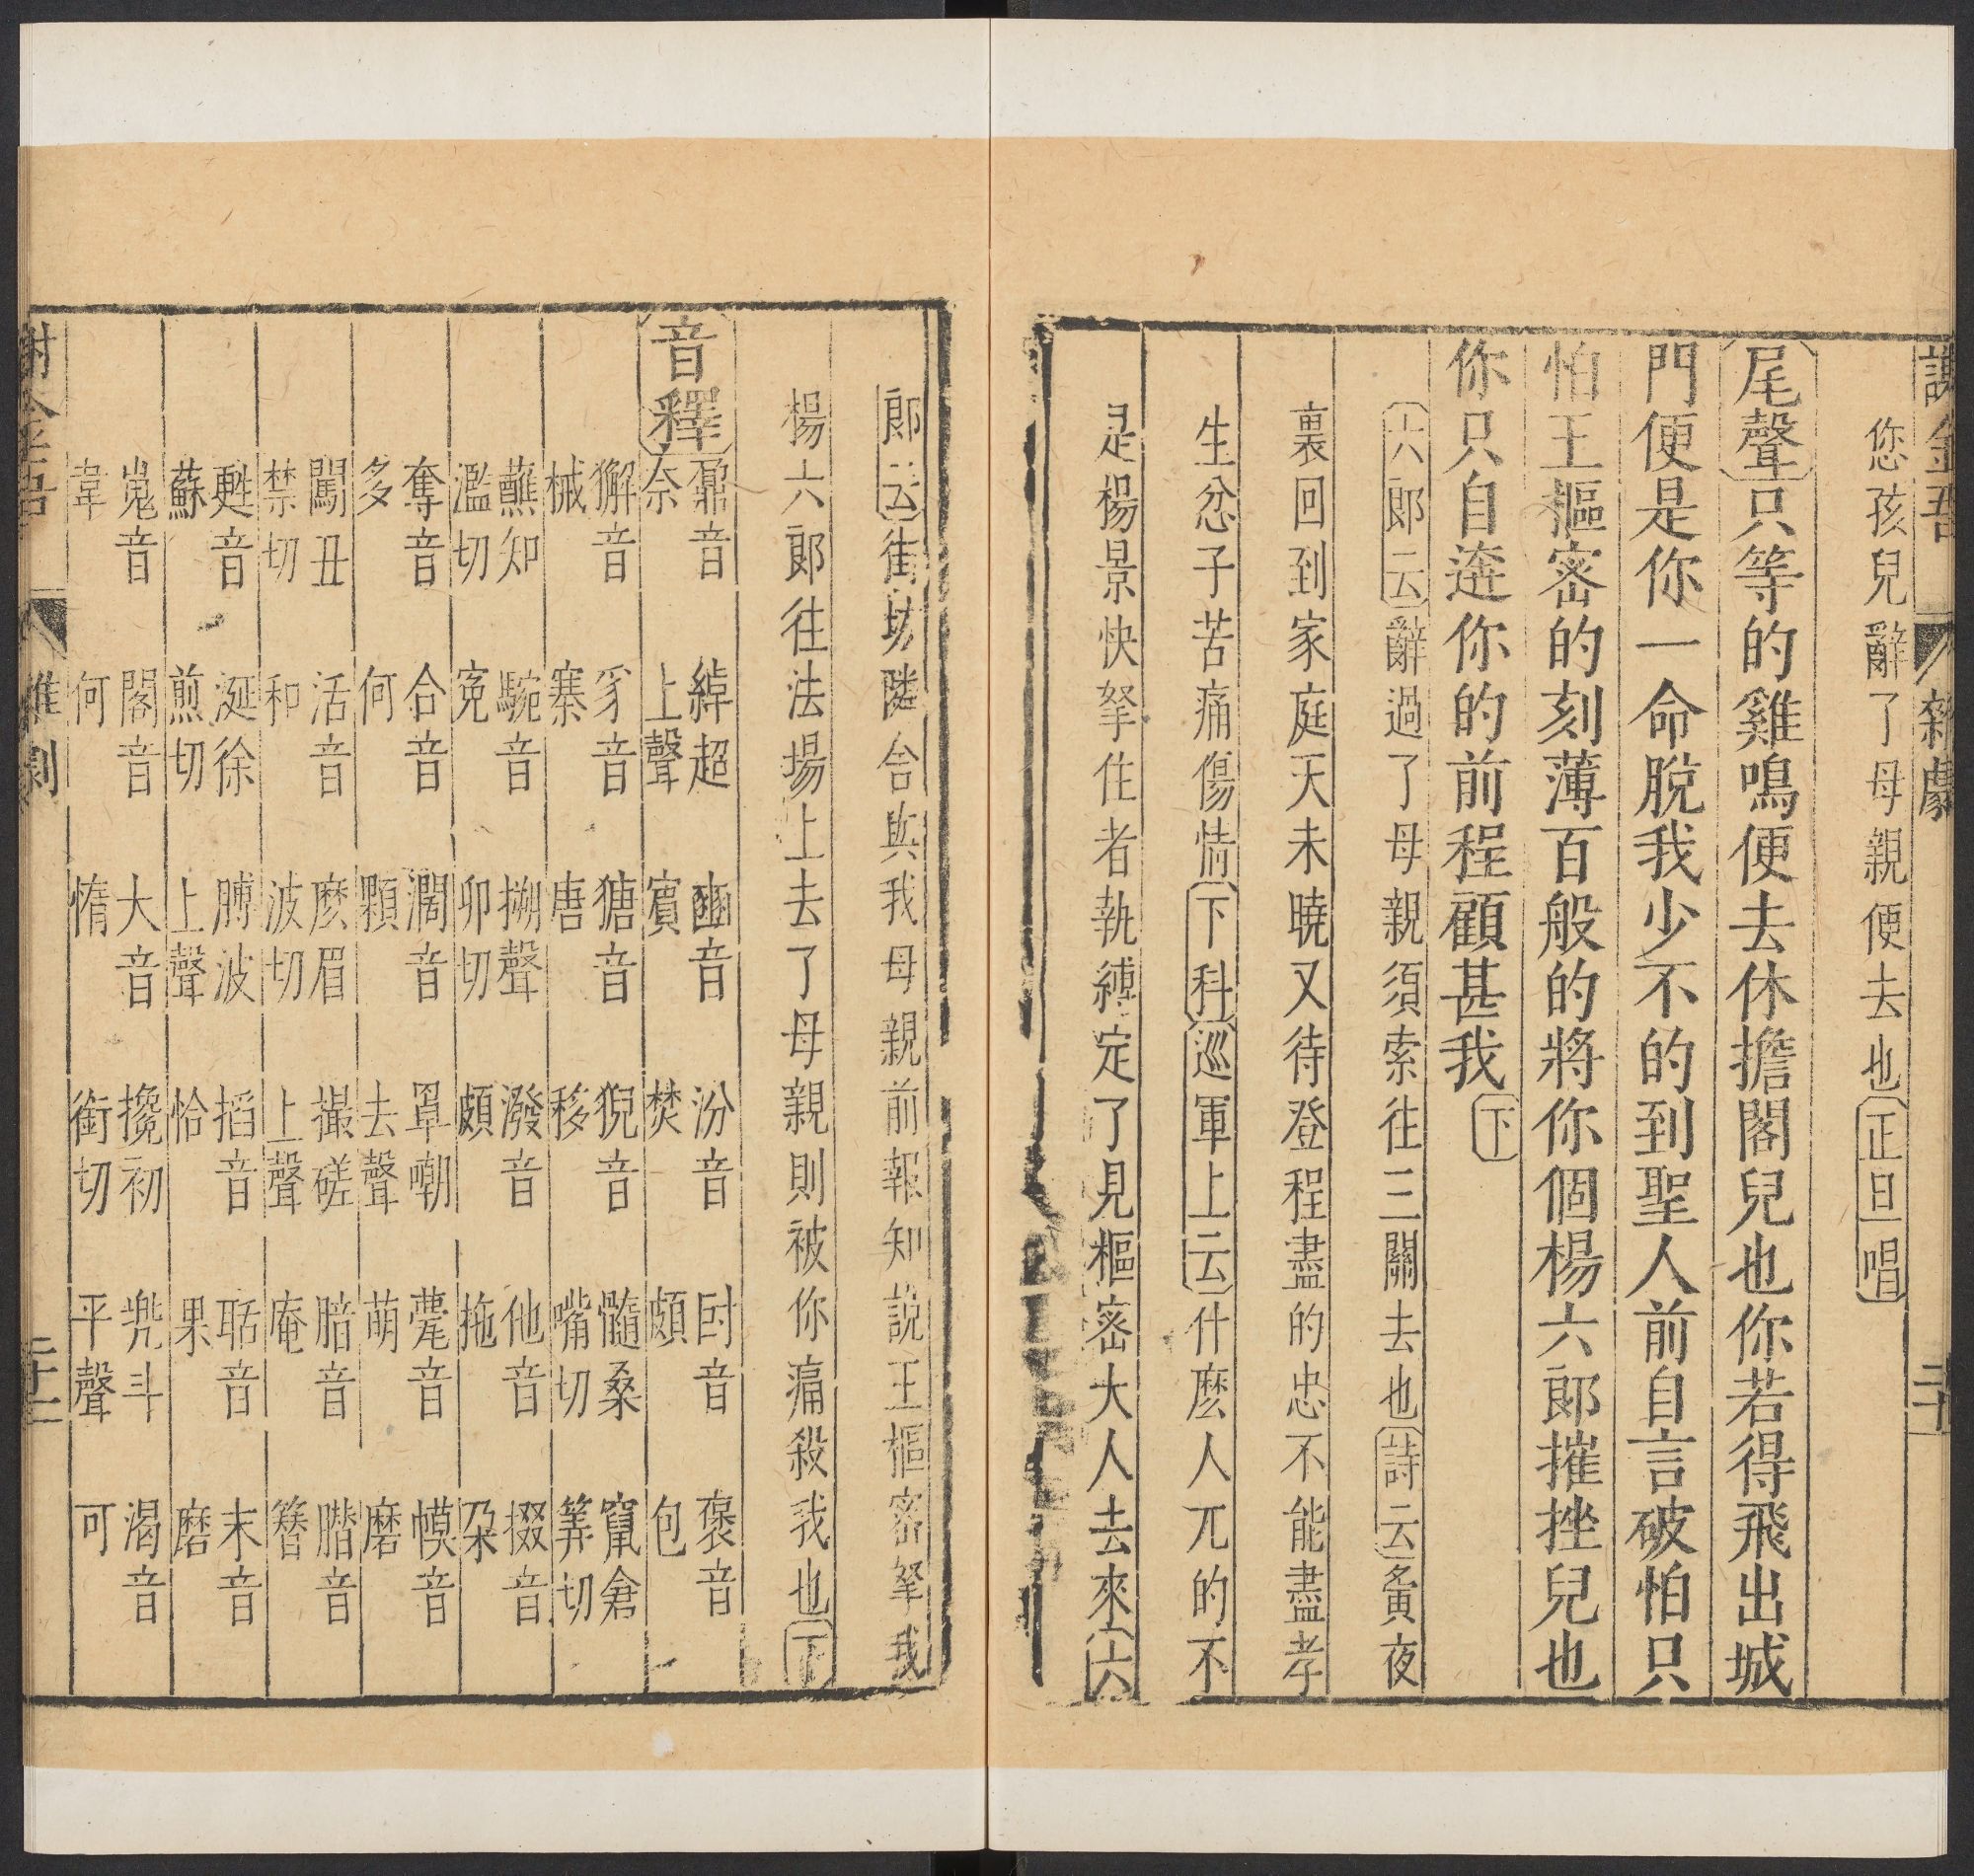 謝金吾 雜劇 二十
您孩兒辭了母親便去也正旦唱
尾聲只等的雞鳴便去休擔閣兒也你若得飛出城
門便是你一命脫我少不的到聖人前自言破怕只
怕王樞密的刻薄百般的將你個楊六郎摧挫兒也
你只自遶你的前程顧甚我下
六郎云辭過了母親須索往三關去也詩云夤夜
裏回到家庭天未曉又待登程盡的忠不能盡孝
生忿子苦痛傷情下科巡軍上云什麽人兀的不
是楊景快拏住者執縛定了見樞密大人去來六
郎云街坊隣舍與我母親前報知說王樞密拏我
楊六郎往法場上去了母親則被你痛殺我也下
音釋
鼐音奈 綽超上聲 豳音賓 汾音焚 音頗 褒音包
獬音械 豸音寨 獚音唐 猊音移 髓桑嘴切 竄倉筭切
蘸知濫切 音 搠聲卯切 潑音頗 他音拖 掇音朶
奪音多 合音何 濶音顆 罩嘲去聲 薨音萌 幙音磨
闖丑禁切 活音和 麽眉波切上聲 撮磋上聲 腤音庵 臢音簪
甦音蘇 涎徐煎切 膊波上聲 掐音恰 聒音果 末音磨
嵬音韋 閣音何 大音惰 攙初銜切 兜斗平聲 渴音可
謝金吾 雜劇 二十一